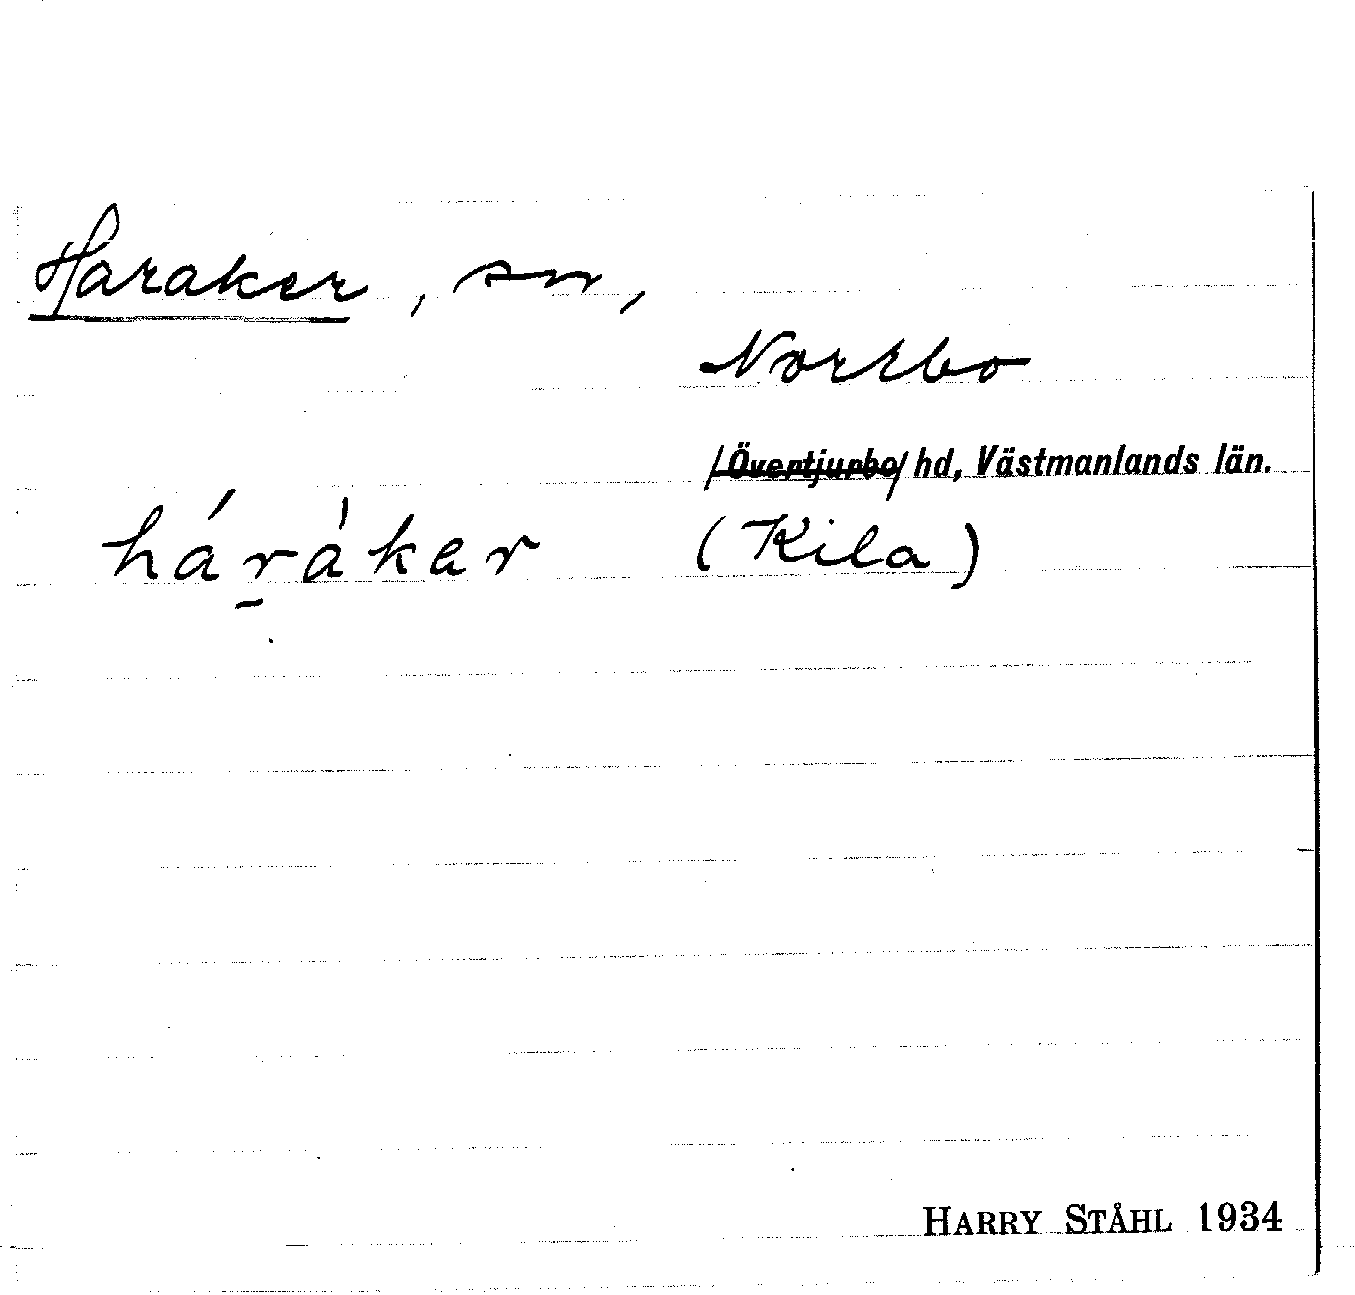 Haraker, sn,
Norrbo
/Övertjurbo/ hd, Västmanlands län.
háràker (Kila)
HARRY STÅHL 1934